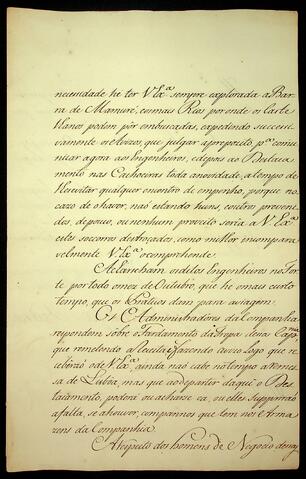 necessidade he ter V. Exª. sempre explorada a Bar
ra de Mamuré, e os mais Rios por onde os Caste
lhanos podem pôr emboscadas, expedindo successi
vamente os Avizos, que julgar a proposito pª. comu
nicar agora aos Ingenheiros, e depois ao Destaca
mento nas Cachoeiras toda a novidade, a tempo de
se evitar qualquer encontro de empenho, porque no
cazo de o haver, não estando huns, e outros preveni
dos, de pouco, ou nenhum proveito seria a V. Exª.
estes socorros destroçados, como milhor incompara
velmente V. Exª. o comprehende.
os ditos Engenheiros no For
te por todo o mez de Outubro, que he o mais curto
tempo, que os Praticos dam para a viagem.
Os Administradores da Companhia
respondem sobre o Fardamento da Tropa dessa Cap.nia
que remetendo a Receita, e fazendo avizo logo que re
cebêrão o de V. Exª., ainda não cabe no tempo a reme
sa de Lisboa, mas que ao departir daqui o Des
tacamento, poderá ou achar-se cá, ou elles suppriráõ
a falta, se a houver, com pannos que tem nos Arma
zens da Companhia.
A respeito dos homens de Negocio